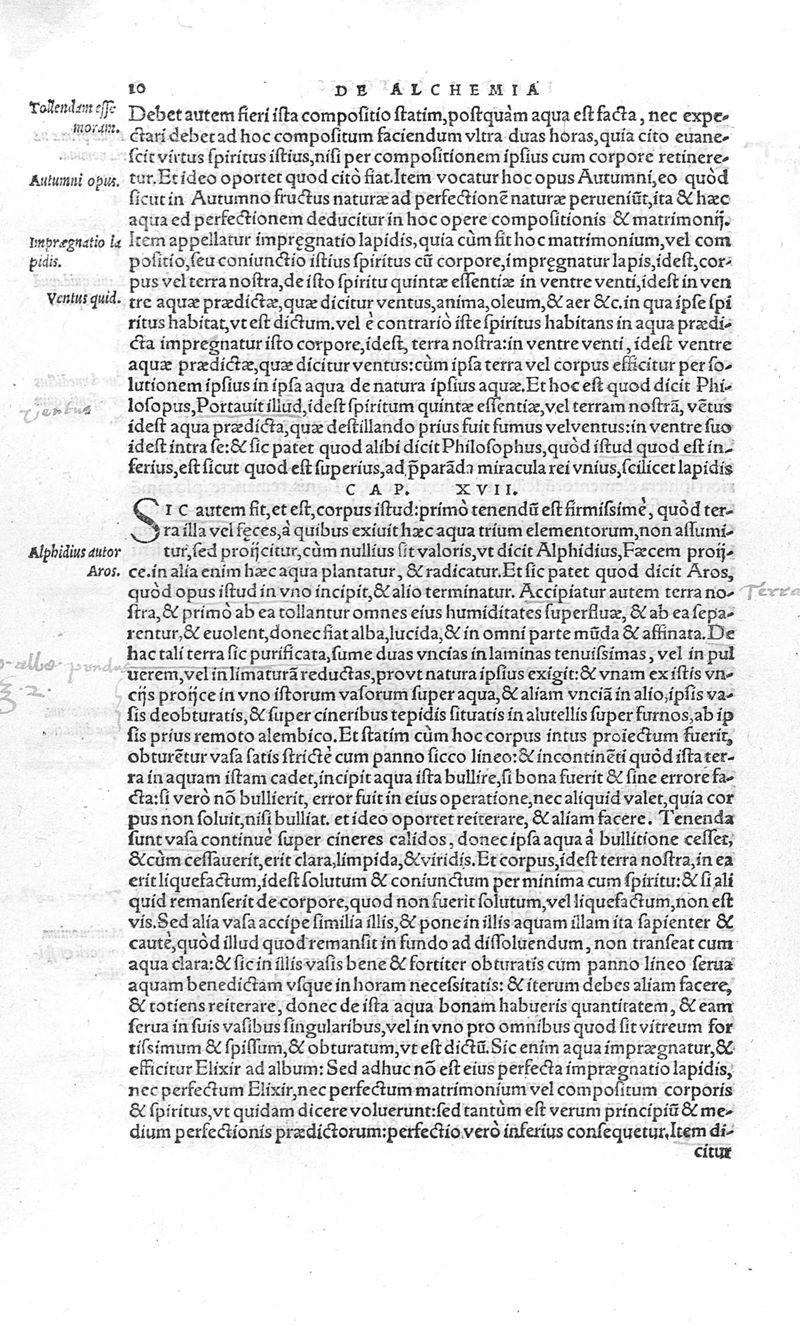 20 DE ALCHEMIA
Tollendam esse moram.
Debet autem fieri ista compositio statim, postquàm aqua est facta, nec expe-
ctari debet ad hoc compositum faciendum vltra duas horas, quia cito euane-
scit virtus spiritus istius, nisi per compositionem ipsius cum corpore retinere-
Autumni opus.
tur. Et ideo oportet quod citò fiat. Item vocatur hoc opus Autumni, eo quòd
sicut in Autumno fructus naturæ ad perfectionē naturæ perueniūt, ita & hæc
aqua ed perfectionem deducitur in hoc opere compositionis & matrimonij.
Imprægnatio la
pidis.
Item appellatur impręgnatio lapidis, quia cùm fit hoc matrimonium, vel com
positio, seu coniunctio istius spiritus cū corpore, impręgnatur lapis, idest, cor-
pus vel terra nostra, de isto spiritu quintæ essentiæ in ventre venti, idest in ven
Ventus quid.
tre aquæ prædictæ, quæ dicitur ventus, anima, oleum, & aer &c. in qua ipse spi
ritus habitat, vt est dictum. vel è contrariò iste spiritus habitans in aqua prædi-
cta impregnatur isto corpore, idest, terra nostra: in ventre venti, idest ventre
aquæ prædictæ, quæ dicitur ventus: cùm ipsa terra vel corpus efficitur per so-
lutionem ipsius in ipsa aqua de natura ipsius aquæ. Et hoc est quod dicit Phi-
ventus
losopus, Portauit illud, idest spiritum quintæ essentiæ, vel terram nostrā, vētus
idest aqua prædicta, quæ destillando prius fuit fumus vel ventus: in ventre suo
idest intra se: & sic patet quod alibi dicit Philosophus, quòd istud quod est in-
ferius, est sicut quod est superius, ad p̄parāda miracula rei vnius, scilicet lapidis
CAP. XVII.
SIC autem fit, et est, corpus istud: primò tenendū est firmissimè, quòd ter-
ra illa vel fęces, à quibus exiuit hæc aqua trium elementorum, non assumi-
Alphidius autor
Aros.
tur, sed proijcitur, cùm nullius sit valoris, vt dicit Alphidius, Fæcem proij-
ce. in alia enim hæc aqua plantatur, & radicatur. Et sic patet quod dicit Aros,
quòd opus istud in vno incipit, & alio terminatur. Accipiatur autem terra no-
Terra
stra, & primò ab ea tollantur omnes eius humiditates superfluæ, & ab ea sepa-
rentur, & euolent, donec fiat alba, lucida, & in omni parte mūda & affinata. De
hac tali terra sic purificata, sume duas vncias in laminas tenuissimas, vel in pul
uerem, vel in limaturā reductas, prout natura ipsius exigit: & vnam ex istis vn-
cijs proijce in vno istorum vasorum super aqua, & aliam vnciā in alio, ipsis va-
sis deobturatis, & super cineribus tepidis situatis in alutellis super furnos, ab ip
sis prius remoto alembico. Et statim cùm hoc corpus intus proiectum fuerit,
obturētur vasa satis strictè cum panno sicco lineo: & incontinēti quòd ista ter-
ra in aquam istam cadet, incipit aqua ista bullire, si bona fuerit & sine errore fa-
cta: si verò nō bullierit, error fuit in eius operatione, nec aliquid valet, quia cor
pus non soluit, nisi bulliat. et ideo oportet reiterare, & aliam facere. Tenenda
sunt vasa continuè super cineres calidos, donec ipsa aqua à bullitione cesset,
& cùm cessauerit, erit clara, limpida, & viridis. Et corpus, idest terra nostra, in ea
erit liquefactum, idest solutum & coniunctum per minima cum spiritu: & si ali
quid remanserit de corpore, quod non fuerit solutum, vel liquefactum, non est
vis. Sed alia vasa accipe similia illis, & pone in illis aquam illam ita sapienter &
cautè, quòd illud quod remansit in fundo ad dissoluendum, non transeat cum
aqua clara: & sic in illis vasis bene & fortiter obturatis cum panno lineo serua
aquam benedictam vsque in horam necessitatis: & iterum debes aliam facere,
& totiens reiterare, donec de ista aqua bonam habueris quantitatem, & eam
serua in suis vasibus singularibus, vel in vno pro omnibus quod sit vitreum for
tissimum & spissum, & obturatum, vt est dictū. Sic enim aqua imprægnatur, &
efficitur Elixir ad album: Sed adhuc nō est eius perfecta imprægnatio lapidis,
nec perfectum Elixir, nec perfectum matrimonium vel compositum corporis
& spiritus, vt quidam dicere voluerunt: sed tantùm est verum principiū & me-
dium perfectionis prædictorum: perfectio verò inferius consequetur. Item di-
citur